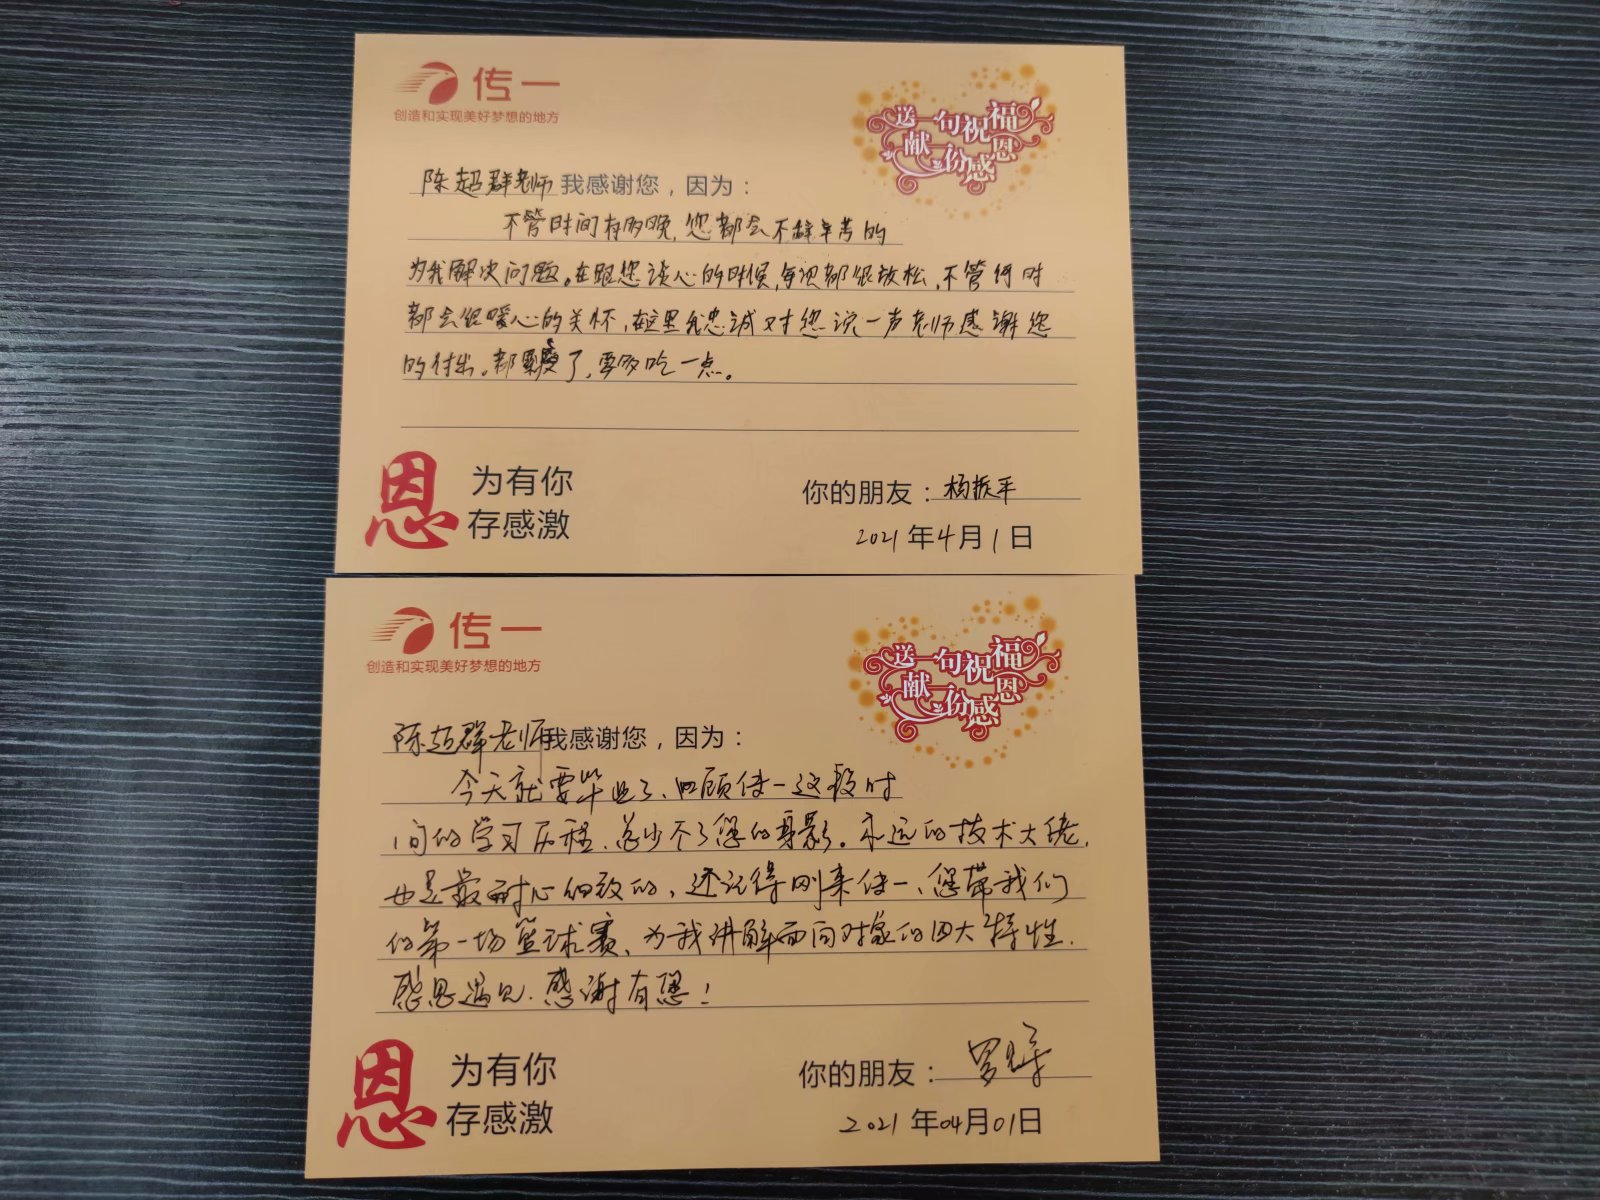 传一
创造和实现美好梦想的地方
送一句祝福
献一份感恩
陈超群老师我感谢您，因为：
不管时间有多晚，您都会不辞辛苦的
为我解决问题。在跟您谈心的时候，每次都很放松，不管何时
都会很暖心的关怀，在这里我忠诚对您说一声老师感谢您
的付出。都瘦了，要多吃一点。
恩
因为有你
心存感激
你的朋友：杨振平
2021年4月1日
传一
创造和实现美好梦想的地方
送一句祝福
献一份感恩
陈超群老师我感谢您，因为：
今天就要毕业了、回顾传一这段时
间的学习历程、总少不了您的身影。永远的技术大佬，
也是最耐心细致的、还记得刚来传一、您带我们
的第一场篮球赛、为我讲解面向对象的四大特性.
感恩遇见.感谢有您！
恩
因为有你
心存感激
你的朋友：罗
2021年04月01日